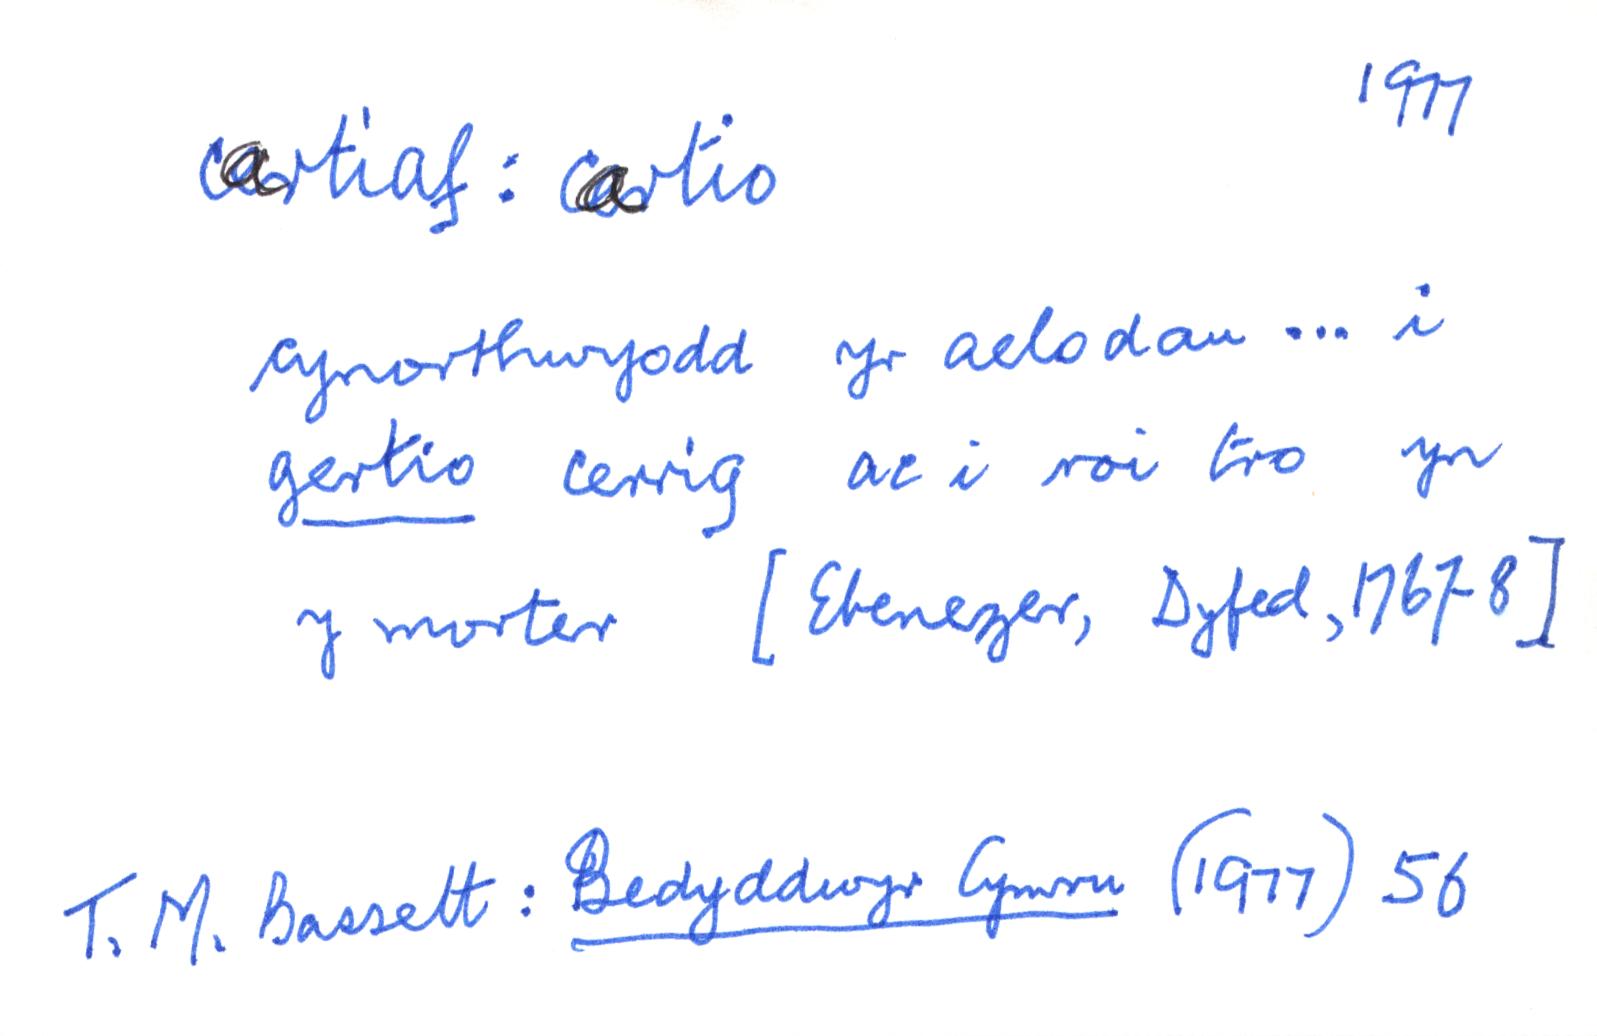 1977
cartiaf : cartio
cynorthwyodd yr aelodau ... i
gertio cerrig ac i roi tro yn
y morter [Ebenezer, Dyfed, 1767-8]
T. M. Bassett : Bedyddwyr Cymru (1977) 56